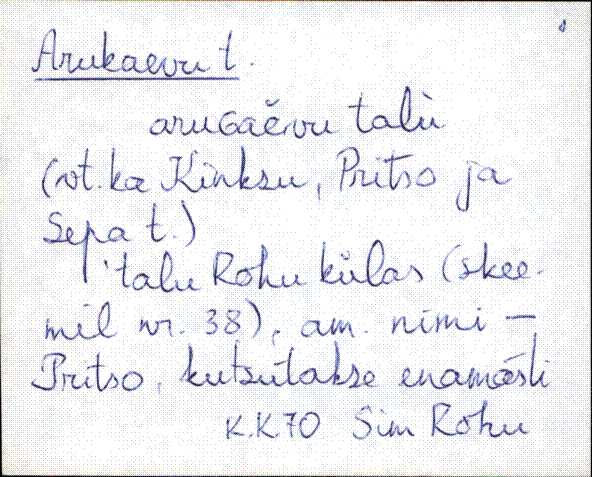 Arukaevu t.
aruGaĕvu talù
(vt. ka Kinksu, Pritso ja
Sepa t.)
talu Rohu külas (skee-
mil nr. 38), am. nimi –
Pritso, kutsutakse enamasti
K.K70 Sim Rohu